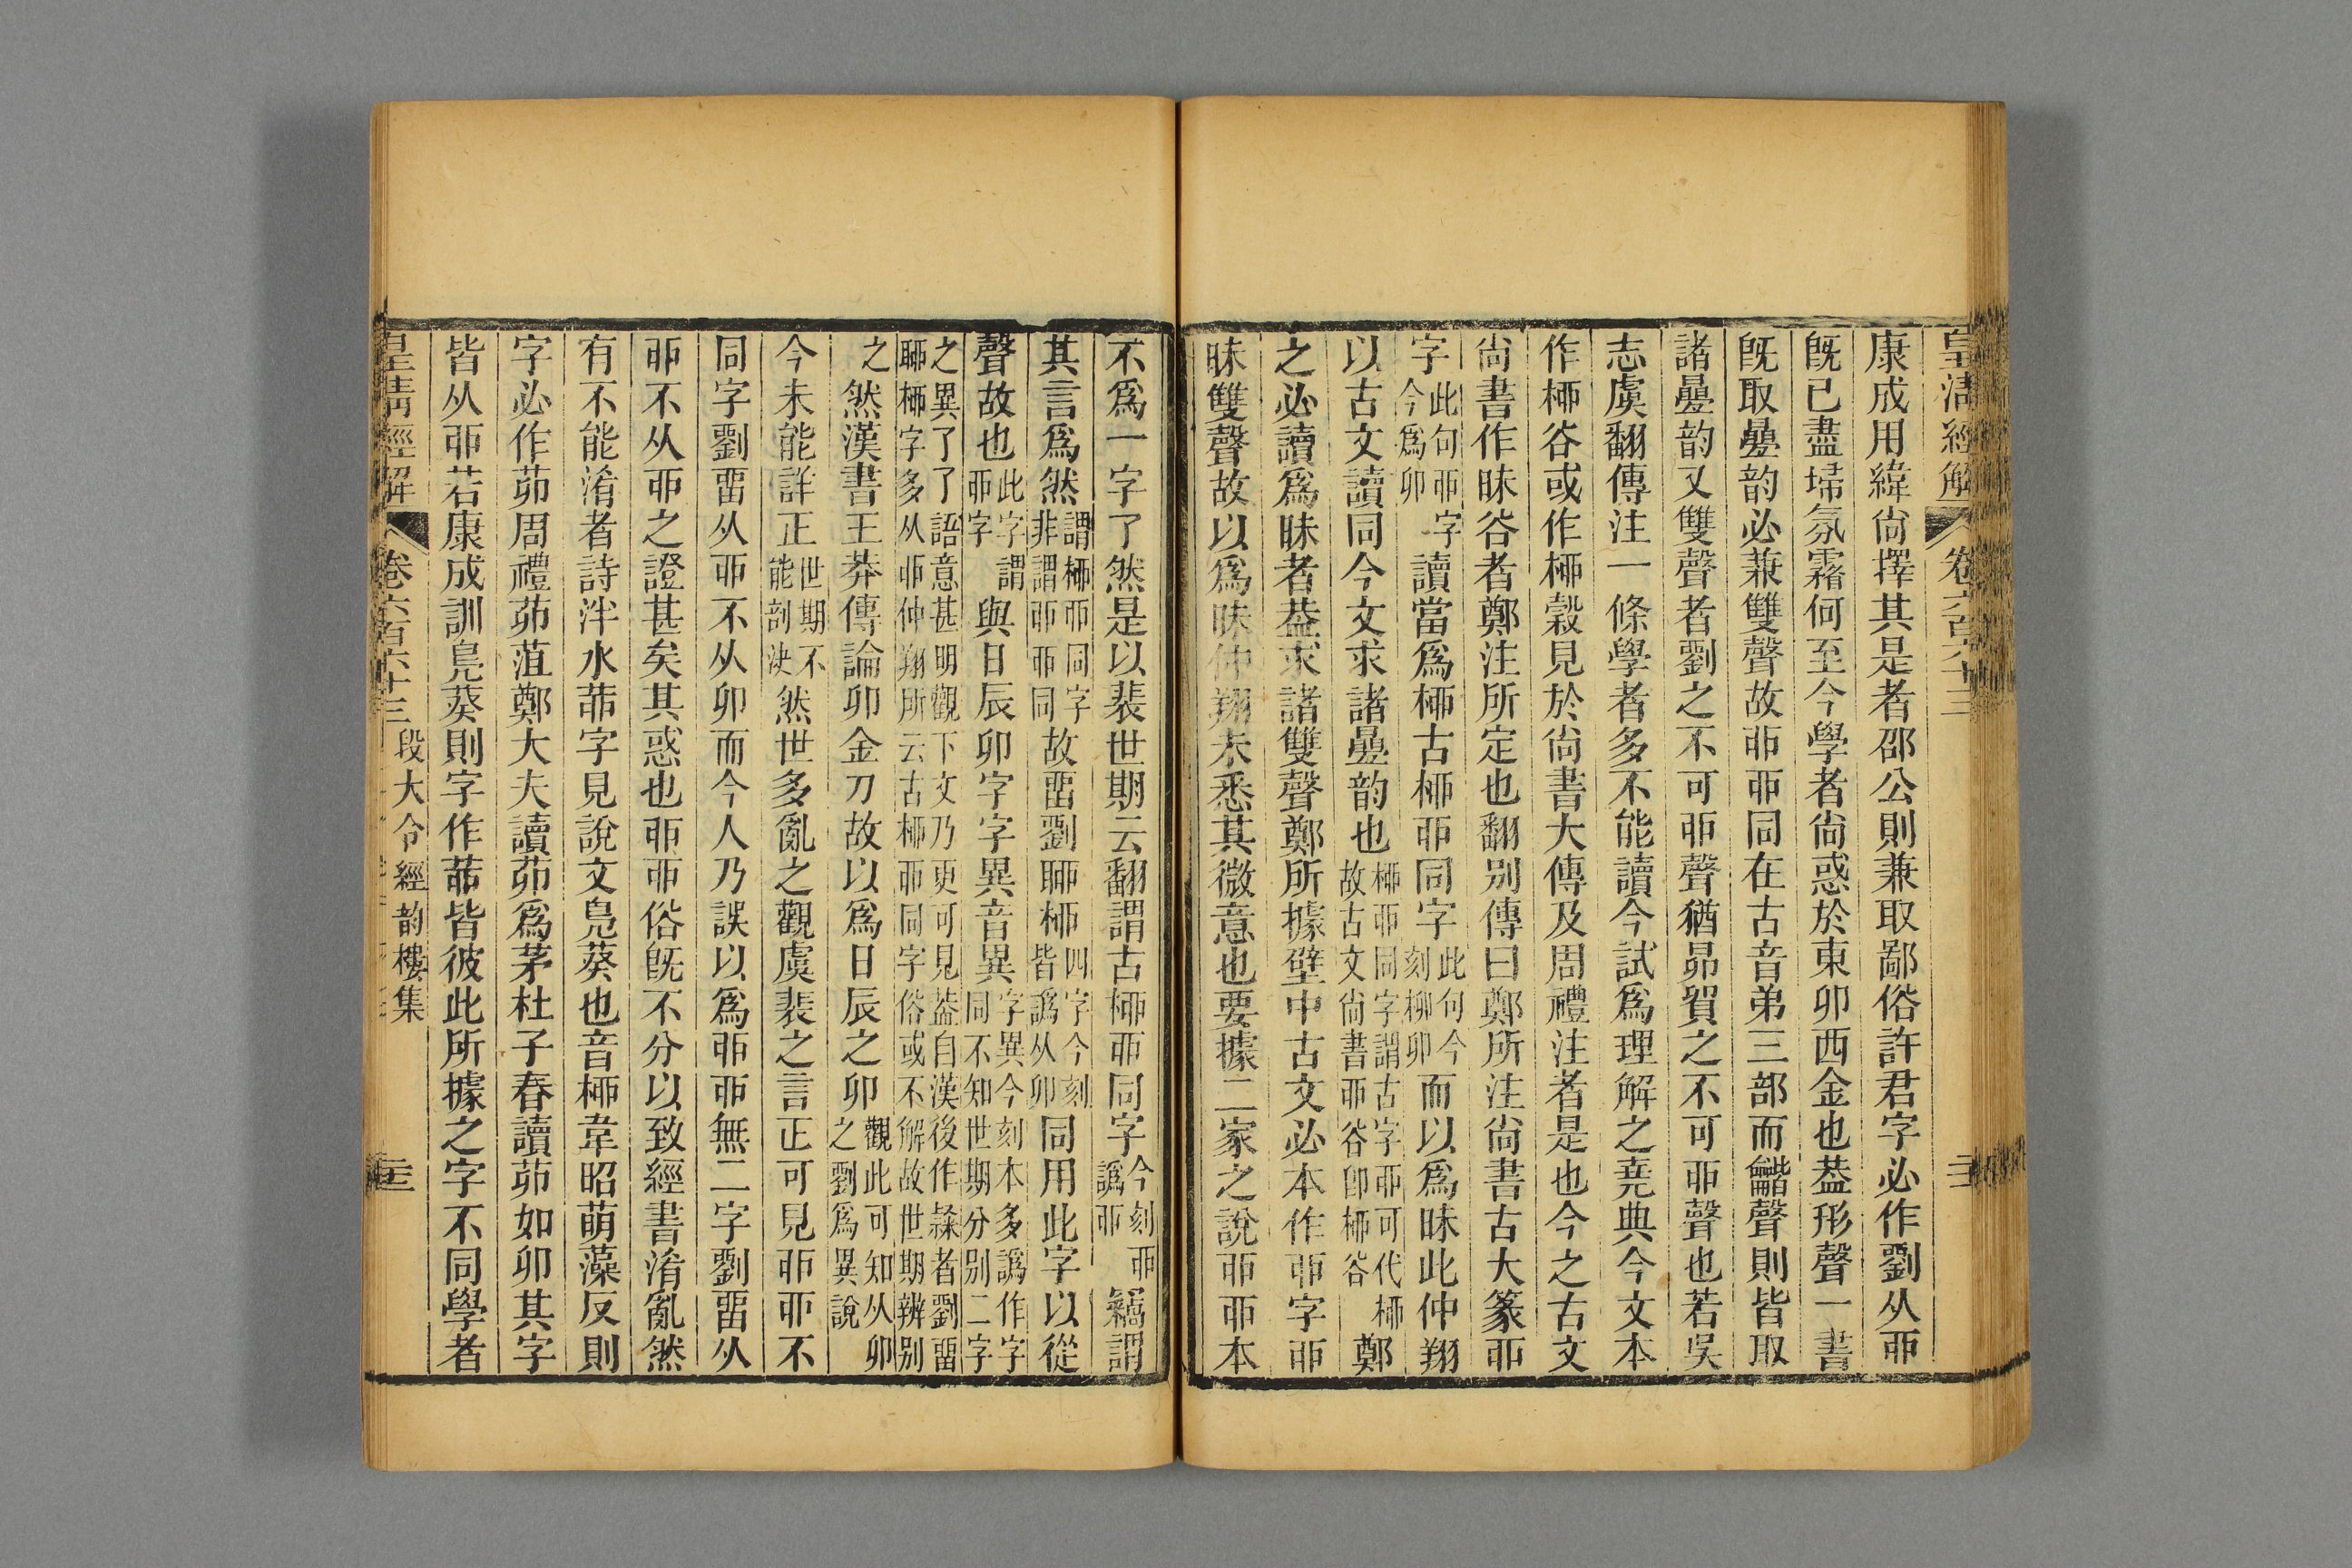 皇清經解 卷六百六十三
康成用緯尙擇其是者邵公則兼取鄙俗許君字必作劉从丣
旣已盡埽氛霧何至今學者尙惑於東卯西金也葢形聲一書
旣取曡韵必兼雙聲故戼丣同在古音弟三部而龤聲則皆取
諸曡韵又雙聲者劉之不可戼聲猶昴貿之不可丣聲也若吳
志虞翻傳注一條學者多不能讀今試爲理解之堯典今文本
作桺谷或作桺穀見於尙書大傳及周禮注者是也今之古文
尙書作昧谷者鄭注所定也翻别傳曰鄭所注尙書古大篆丣
字此句丣字今爲卯讀當爲桺古桺丣同字此句今刻柳卯而以爲昧此仲翔
以古文讀同今文求諸曡韵也桺丣同字謂古字丣可代桺故古文尙書丣谷卽桺谷鄭
之必讀爲昧者葢求諸雙聲鄭所據壁中古文必本作戼字戼
昧雙聲故以爲昧仲翔未悉其微意也要據二家之說戼丣本
不爲一字了然是以裴世期云翻謂古桺丣同字今刻丣譌戼竊謂
其言爲然謂桺丣同字非謂戼丣同故畱劉聊桺四字今刻皆譌从卯同用此字以從
聲故也此字謂丣字與日辰卯字字異音異字異今刻本多譌作字同不知世期分别二字
之異了了語意甚明觀下文乃更可見葢自漢後作隸者劉畱聊桺字多从戼仲翔所云古桺丣同字俗或不解故世期辨别
之然漢書王莽傳論卯金刀故以爲日辰之卯觀此可知从卯之劉爲異說
今未能詳正世期不能剖決然世多亂之觀虞裴之言正可見戼丣不
同字劉畱从丣不从卯而今人乃誤以爲戼丣無二字劉畱从
戼不从丣之證甚矣其惑也戼丣俗旣不分以致經書淆亂然
有不能淆者詩泮水茆字見說文鳧葵也音桺韋昭萌藻反則
字必作茆周禮茆菹鄭大夫讀茆爲茅杜子春讀茆如卯其字
皆从戼若康成訓鳧葵則字作茆皆彼此所據之字不同學者
皇清經解 卷六百六十三 段大令經韵樓集